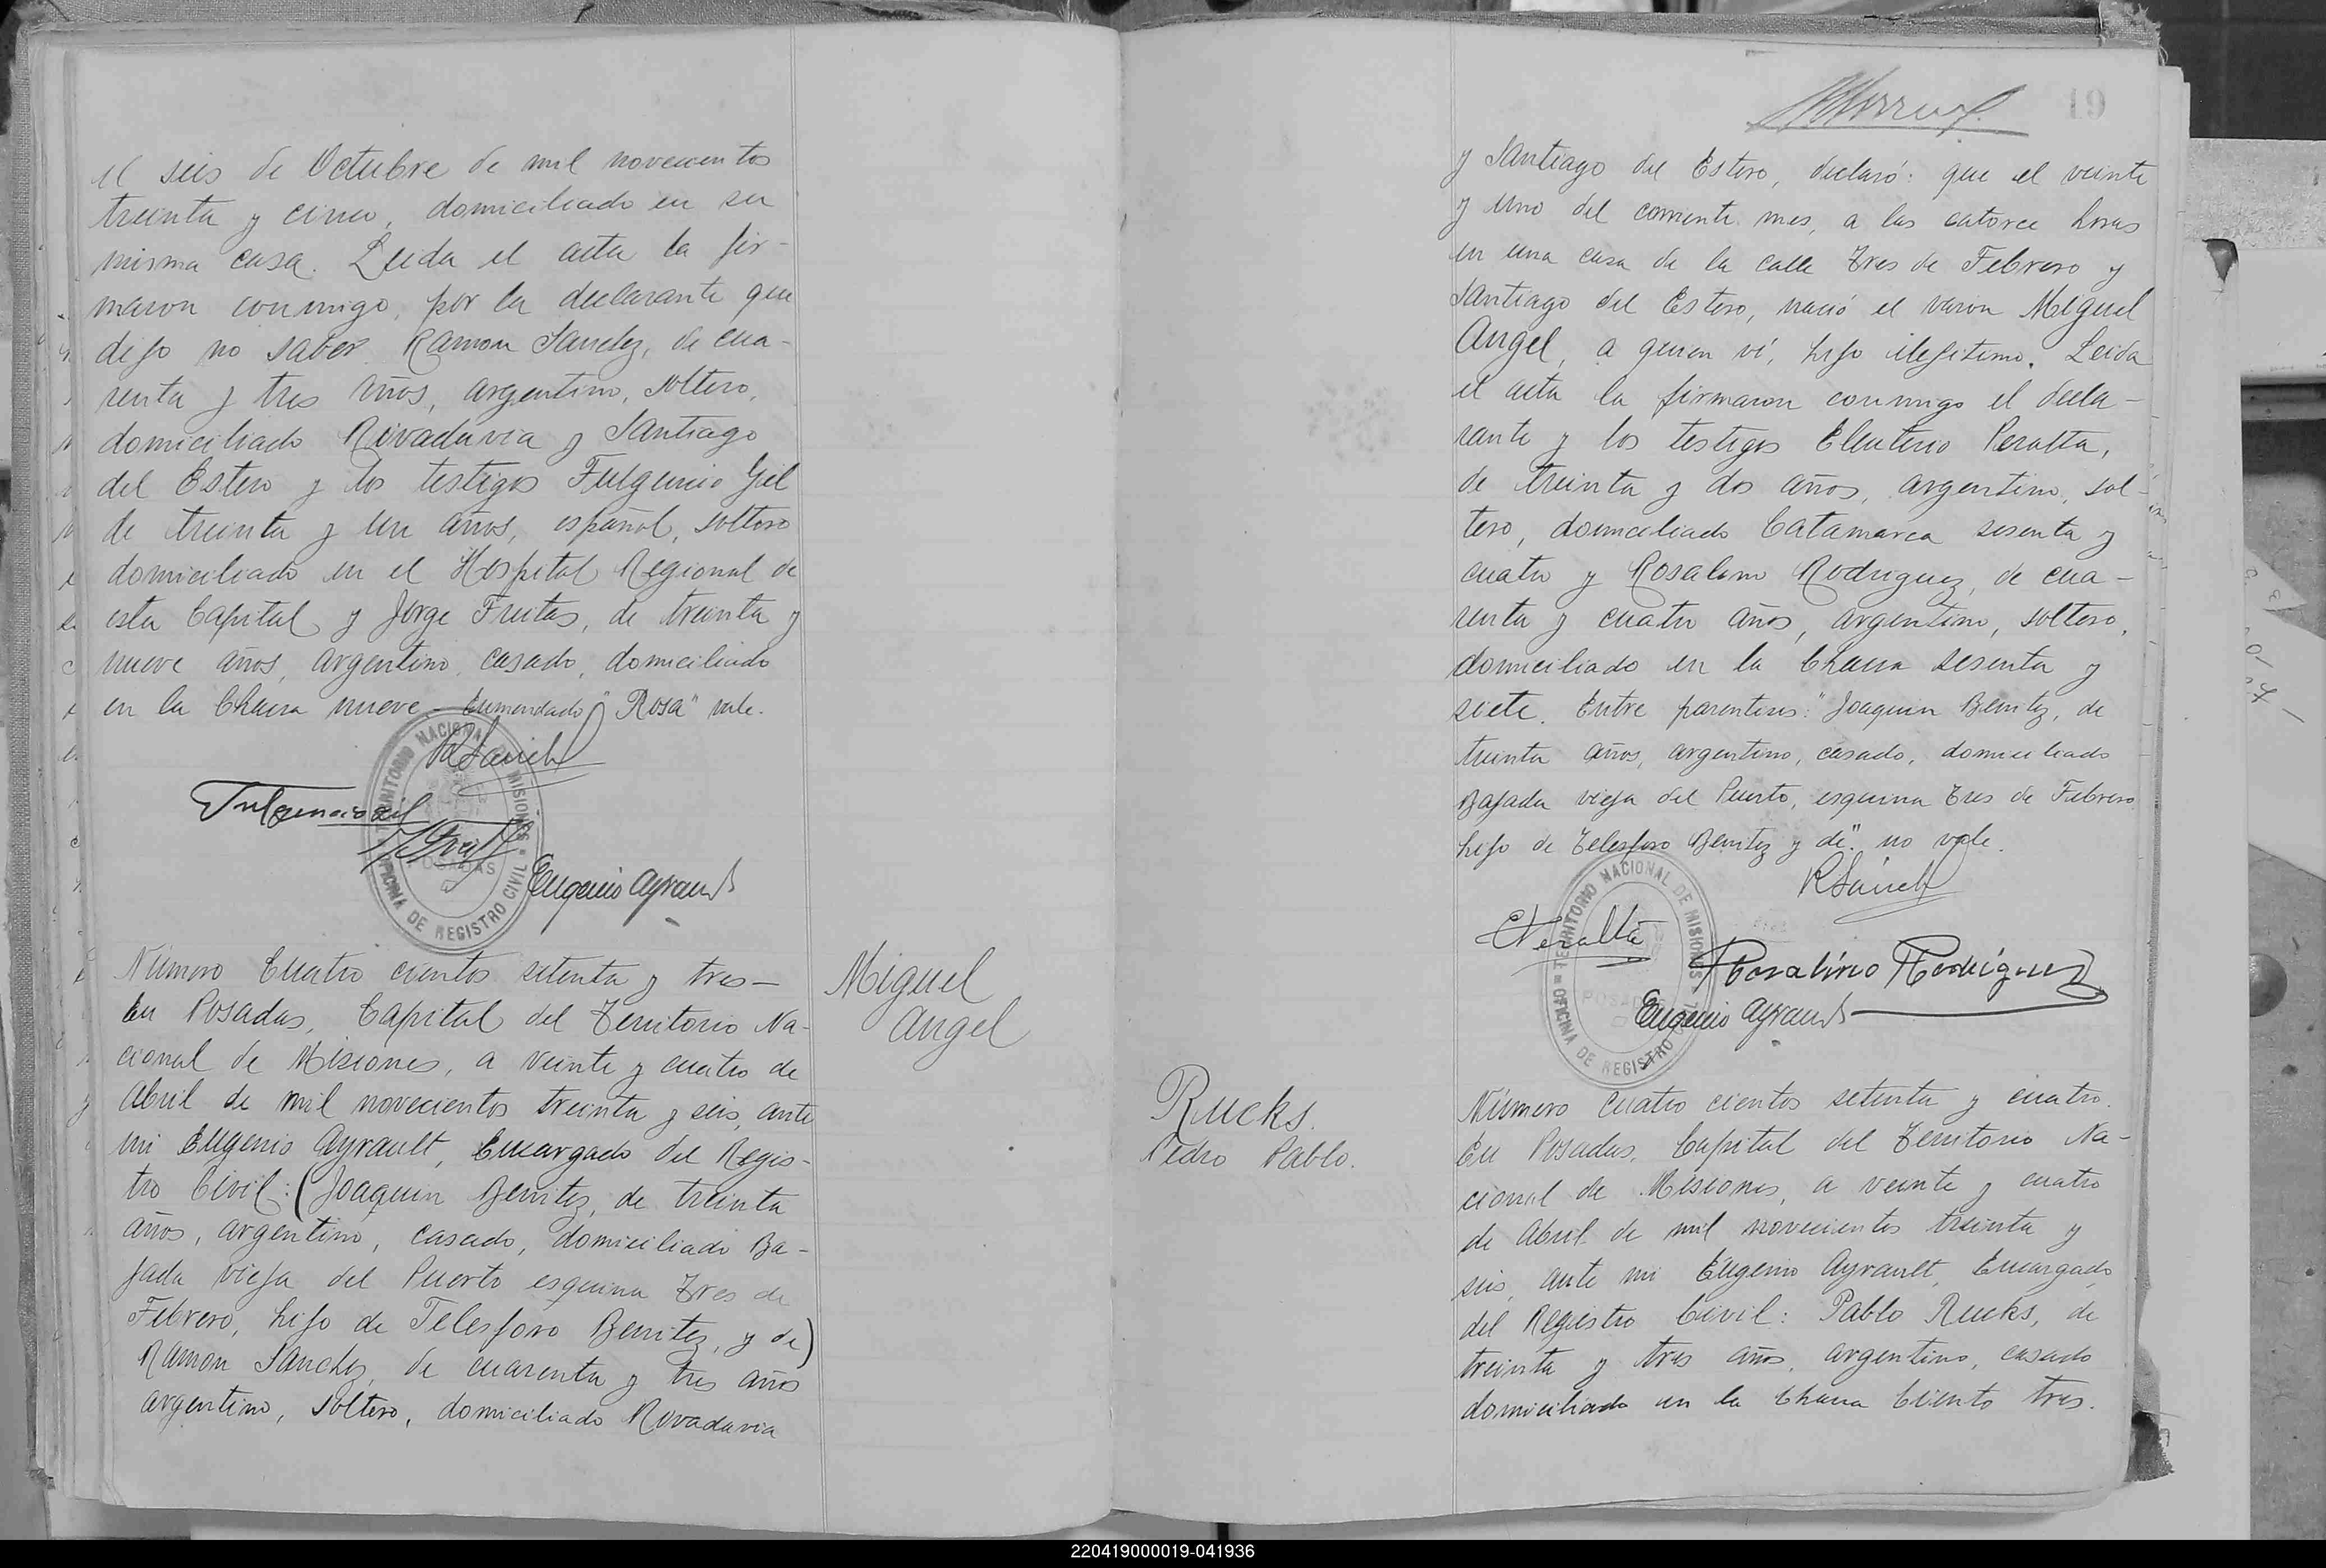 el seis de Octubre de mil novecientos
treinta y cinco, domiciliado en su
misma casa. Leida el acta la fir-
maron conmigo, por la declarante que
dijo no saber Ramon Sanchez, de cua-
renta y tres años, argentino, soltero,
domiciliado Rivadavia y Santiago
del Estero y los testigos Fulgencio Gil
de treinta y un años, español, soltero
domiciliado en el Hospital Regional de
esta Capital y Jorge Fruitas, de treinta y
nueve años, argentino, casado, domiciliado
en la Chacra nueve - Enmendado "Rosa" vale.
RSanch
Fulgencio Gil
TERRITORIO NACIONAL DE MISIONES
POSADAS
OFICINA DE REGISTRO CIVIL
Eugenio Ayrault
Número Cuatro cientos setenta y tres -
En Posadas, Capital del Territorio Na-
cional de Misiones, a veinte y cuatro de
Abril de mil novecientos treinta y seis, ante
mi Eugenio Ayrault, Encargado del Regis-
tro Civil: (Joaquin Benitez, de treinta
años, argentino, casado, domiciliado Ba-
jada vieja del Puerto esquina Tres de
Febrero, hijo de Telesforo Benitez, y de)
Ramon Sanchez, de cuarenta y tres años
argentino, soltero, domiciliado Rivadavia
Miguel
Angel
19
y Santiago del Estero, declaró: que el veinte
y uno del corriente mes, a las catorce horas
en una casa de la calle Tres de Febrero y
Santiago del Estero, nació el varon Miguel
Angel, a quien ví, hijo ilegitimo. Leida
el acta la firmaron conmigo el decla-
rante y los testigos Eleuterio Peralta,
de treinta y dos años, argentino, sol-
tero, domiciliado Catamarca sesenta y
cuatro y Rosalino Rodriguez, de cua-
renta y cuatro años, argentino, soltero,
domiciliado en la Chacra sesenta y
siete. Entre parentesis: "Joaquin Benitez, de
treinta años, argentino, casado, domiciliado
Bajada vieja del Puerto, esquina Tres de Febrero
hijo de Telesforo Benitez y de". no vale.
RSanch
EPeralta
Rosalino Rodríguez
TERRITORIO NACIONAL DE MISIONES
POSADAS
OFICINA DE REGISTRO CIVIL
Eugenio Ayrault
Rucks.
Pedro Pablo.
Número Cuatro cientos setenta y cuatro.
En Posadas, Capital del Territorio Na-
cional de Misiones, a veinte y cuatro
de Abril de mil novecientos treinta y
seis, ante mi Eugenio Ayrault, Encargado
del Registro Civil: Pablo Rucks, de
treinta y tres años, argentino, casado
domiciliado en la Chacra Ciento tres.
220419000019-041936